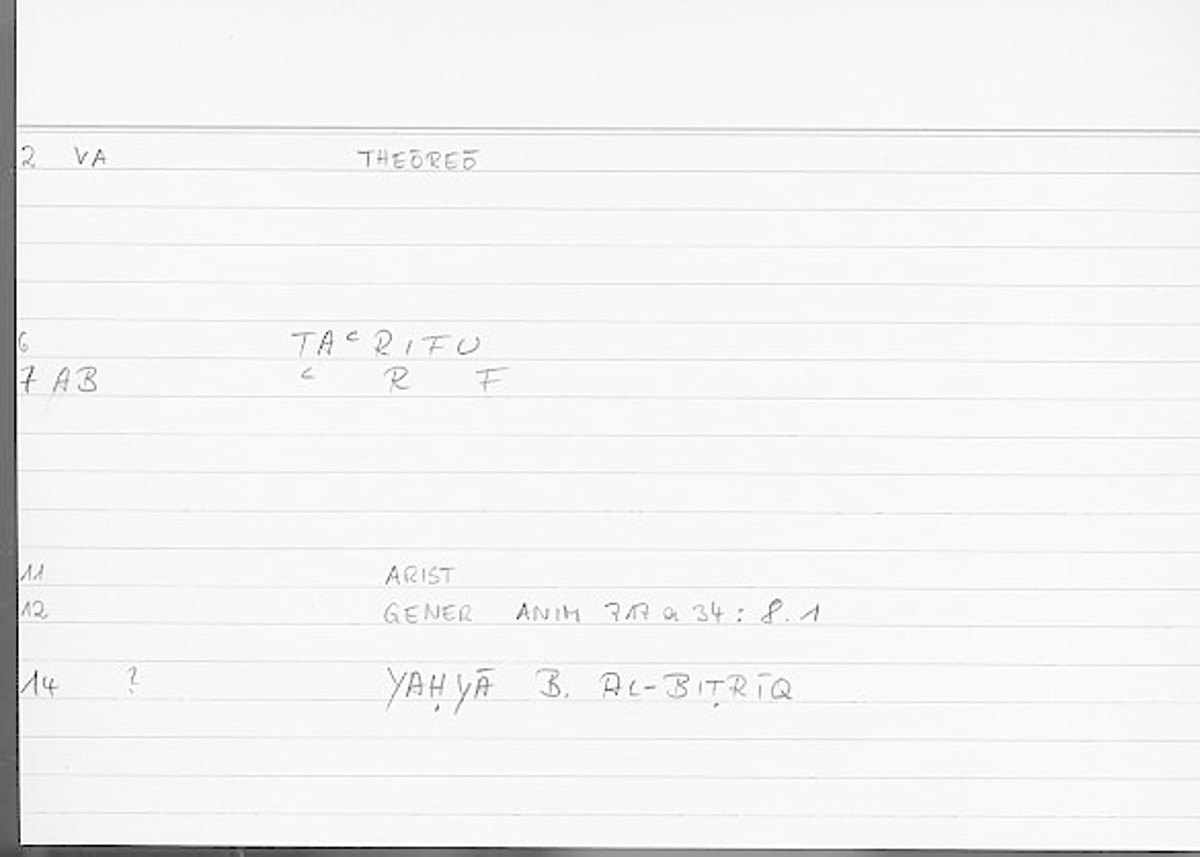 2 VA THEŌREŌ
6 TAᶜRIFU
7 AB ᶜ R F
11 ARIST
12 GENER ANIM 717 a 34 : 8.1
14 ? YAḤYĀ B. AL-BIṬRĪQ